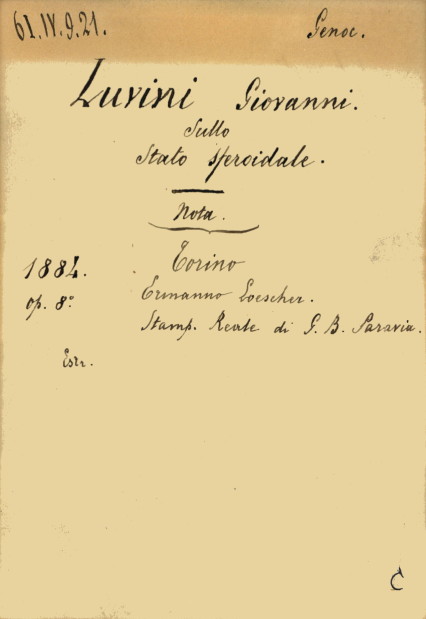 61.IV.9.21. Genoc.
Luvini Giovanni.
Sullo
Stato sferoidale.
Nota.
1884. Torino
op. 8.° Ermanno Loescher.
Stamp. Reale di G. B. Paravia.
Estr.
C